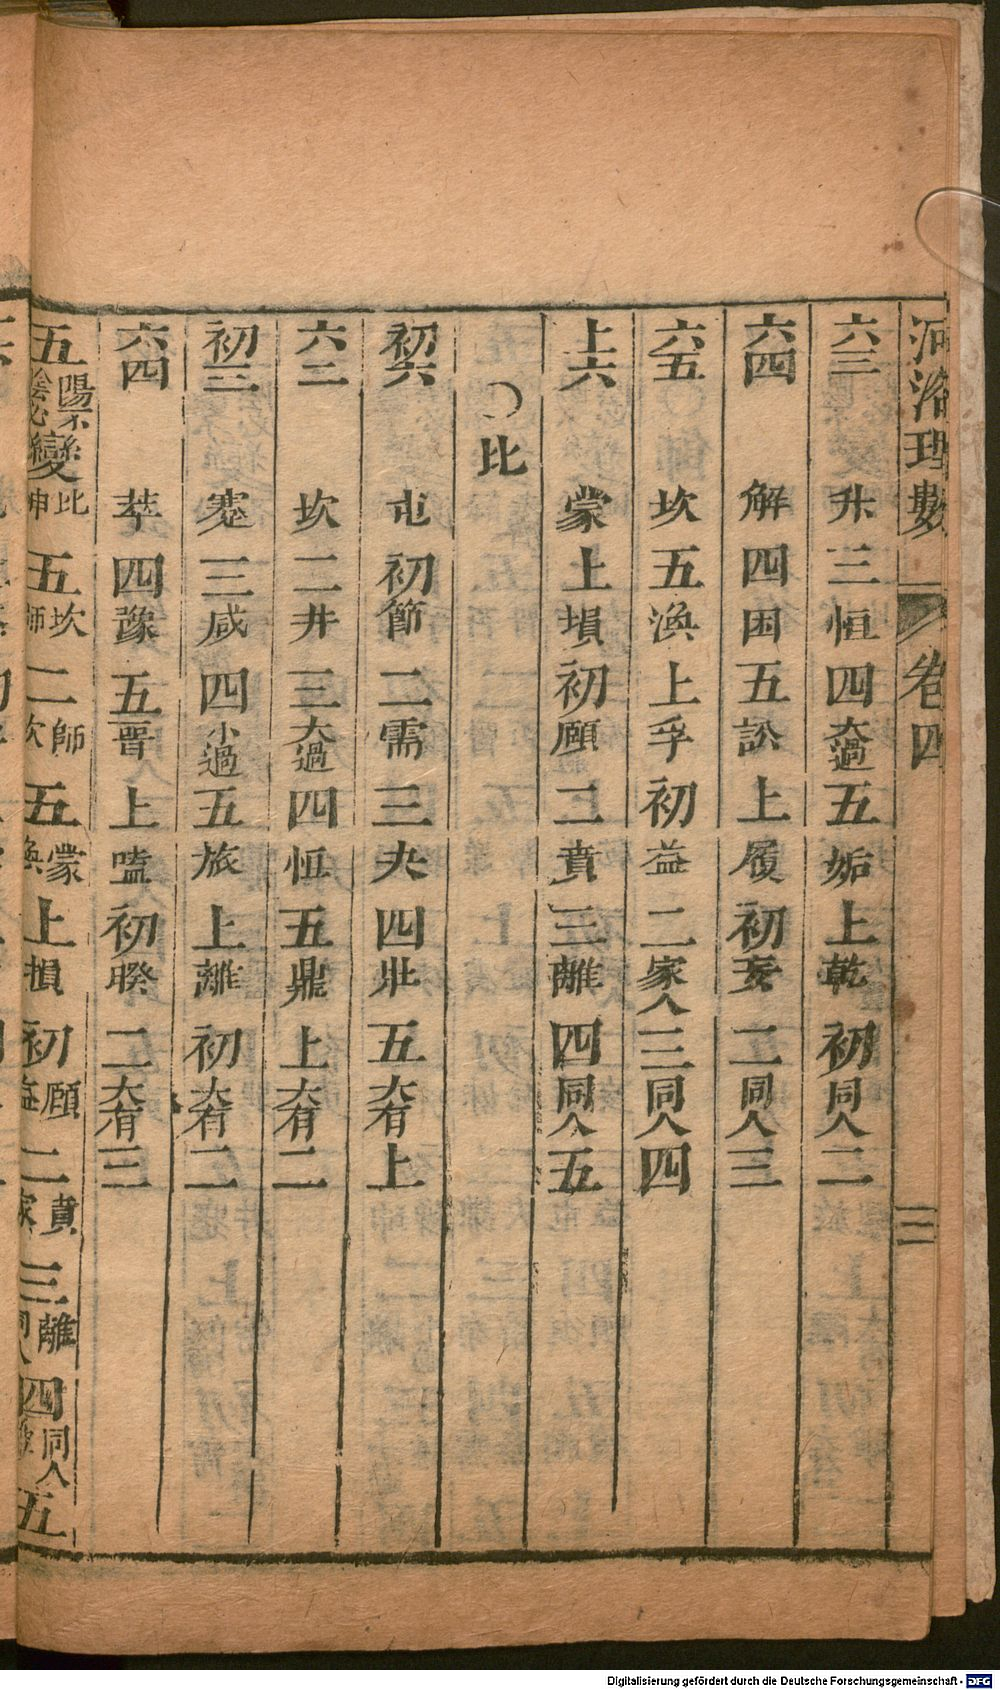 河洛理數 卷四 三
六三 升 三 恒 四 大過 五 姤 上 乾 初 同人 二
六四 解 四 困 五 訟 上 履 初 妄 二 同人 三
六五 坎 五 渙 上 孚 初 益 二 家人 三 同人 四
上六 蒙 上 損 初 頤 二 賁 三 離 四 同人 五
○比
初六 屯 初 節 二 需 三 夬 四 壯 五 大有 上
六二 坎 二 井 三 大過 四 恒 五 鼎 上 大有 二
初三 蹇 三 咸 四 小過 五 旅 上 離 初 大有 二
六四 萃 四 豫 五 晉 上 嗑 初 睽 二 大有 三
五 陽不 陰必 變 比 坤 五 坎 師 二 師 坎 五 蒙 渙 上 損 初 頤 益 二 賁 家 三 離 同人 四 同人 五
Digitalisierung gefördert durch die Deutsche Forschungsgemeinschaft - DFG